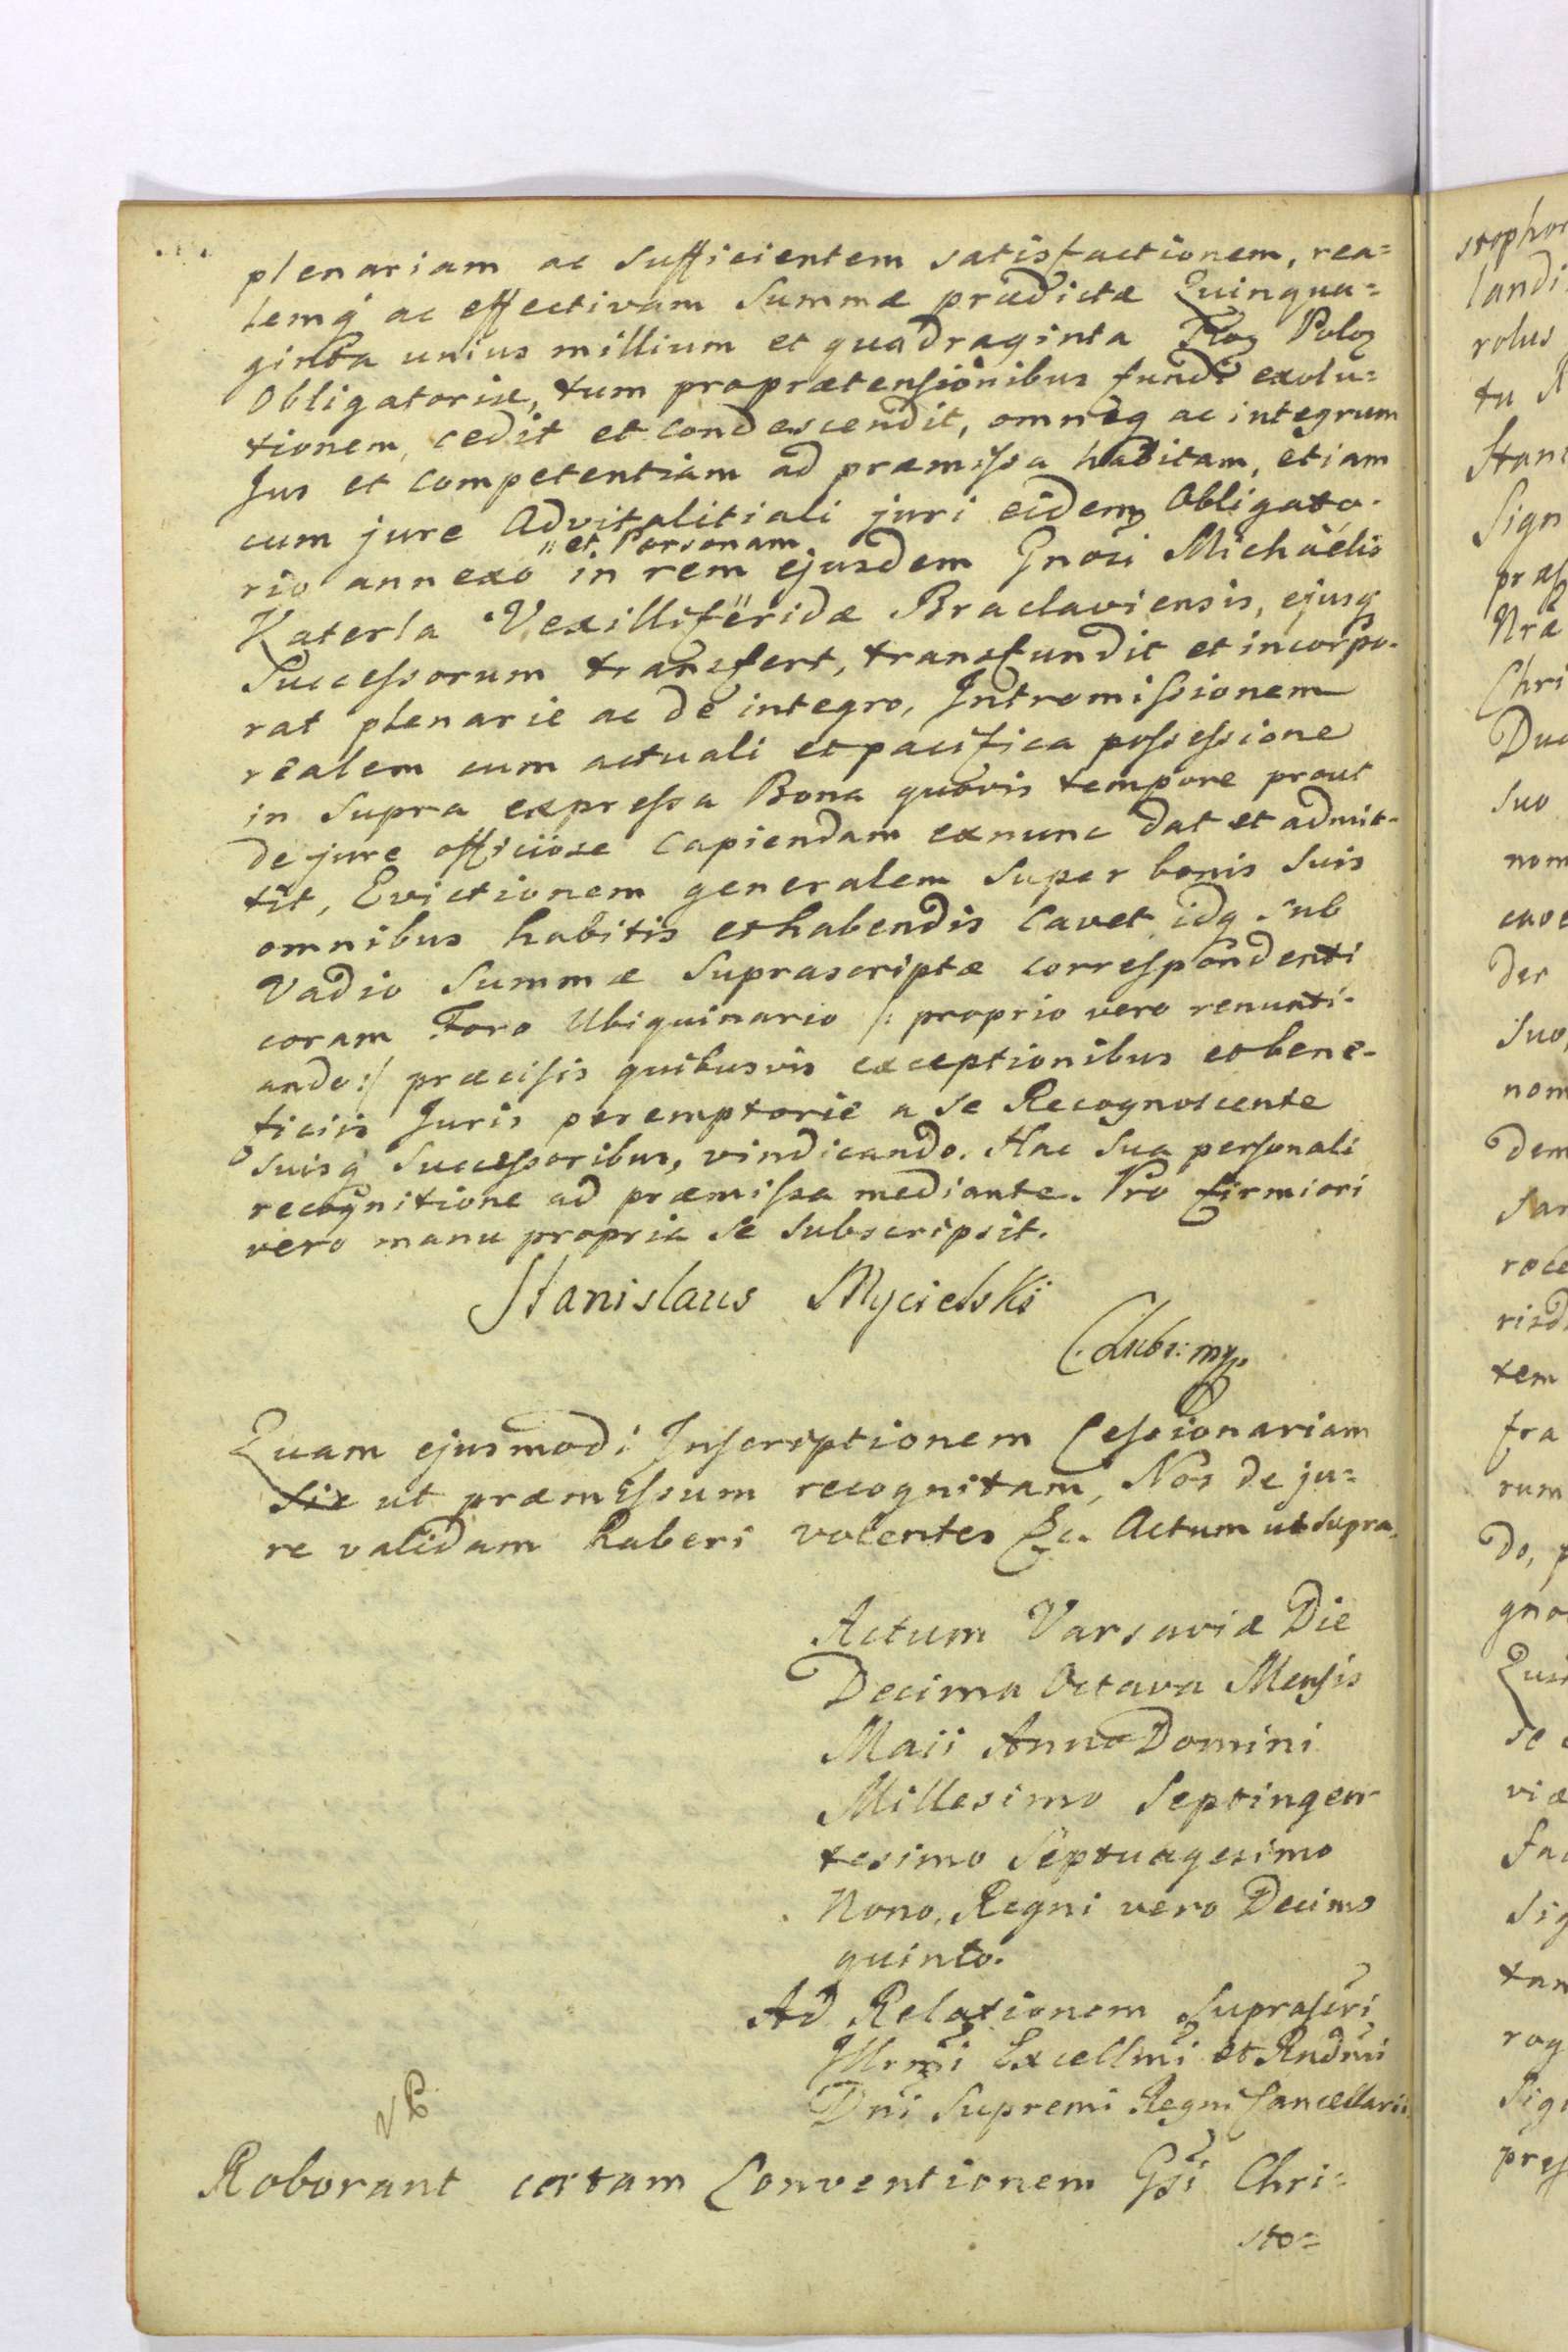 plenariam ac sufficientem satisfactionem, rea=
lemq ac effectivam Summæ prædictæ Quinqua=
ginta unius millium et quadraginta Floꝝ Poloꝝ
Obligatoriæ, tum proprætensionibus fundi exolu=
tionem, cedit et condescendit, omneq ac integrum
Jus et competentiam ad præmissa habitam, etiam
cum jure Advitalitiali juri eidem Obligato-
" et Personam
rio annexo in rem ejusdem Gnosi Michaëlis
Katerla Vexilliferidæ Braclaviensis, ejusq
Successorum transfert, transfundit et incorpo-
rat plenarie ac de integro, Intromissionem
realem cum actuali et pacifica possessione
in supra expressa Bona quovis tempore prout
de jure officiose capiendam exnunc dat et admit-
tit, Evictionem generalem super bonis suis
omnibus habitis et habendis cavet idq sub
Vadio Summæ suprascriptæ correspondenti
coram Foro Ubiquinario /: proprio vero renunti-
ando :/ præcisis quibusvis exceptionibus et bene-
ficiis Juris peremptorie a se Recognoscente
suisq Successoribus, vindicando. Hac sua personali
recognitione ad præmissa mediante. Pro firmiori
vero manu propria se subscripsit.
Stanislaus Mycielski
C. Lubs: mp.
Quam ejusmodi Inscriptionem Cessionariam
sic ut præmissum recognitam, Nos de ju=
re validam haberi volentes &c. Actum ut supra.
Actum Varsaviæ Die
Decima Octava Mensis
Maii Anno Domini
Millesimo Septingen-
tesimo Septuagesimo
Nono, Regni vero Decimo
quinto.
Ad Relationem suprascri
Illrmi Excellmi et Rndmi
Dni Supremi Regni Cancellarii
Roborant certam Conventionem Gsi Chri=
sto=
stophor
landi
rolus
tu R
Stani
Sign
præs
Nræ
Chri
Duc
suo
nom
cave
der
suo,
nom
dem
sar
roce
risd
tem
fra
rum
do, p
gno
Qui
se
viæ
fa
sig
tan
rog
sig
pres